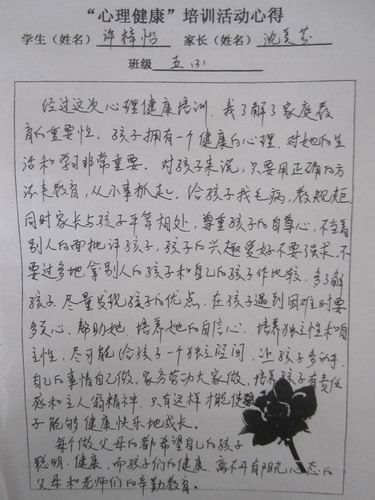 “心理健康”培训活动心得
学生（姓名）许梓怡 家长（姓名）沈美芬
班级 五(3)
经过这次心理健康培训，我了解了家庭教
育的重要性。孩子拥有一个健康的心理，对她的生
活和学习非常重要。对孩子来说，只要用正确的方
法来教育，从小事抓起，给孩子找毛病，教规矩
同时家长与孩子平等相处，尊重孩子的自尊心，不当着
别人的面批评孩子，孩子的兴趣爱好不要强求，不
要过多地拿别人的孩子和自己的孩子作比较，多了解
孩子，尽量发现孩子的优点，在孩子遇到困难时要
多关心，帮助她，培养她的自信心，培养独立性和自
主性，尽可能给孩子一个独立空间，让孩子多动手，
自己的事情自己做，家务劳动大家做，培养孩子有责任
感和主人翁精神，只有这样才能使
子能够健康快乐地成长。
每个做父母的都希望自己的孩子
聪明、健康，而孩子们的健康离不开有阳光心态的
父母和老师们的辛勤教育。